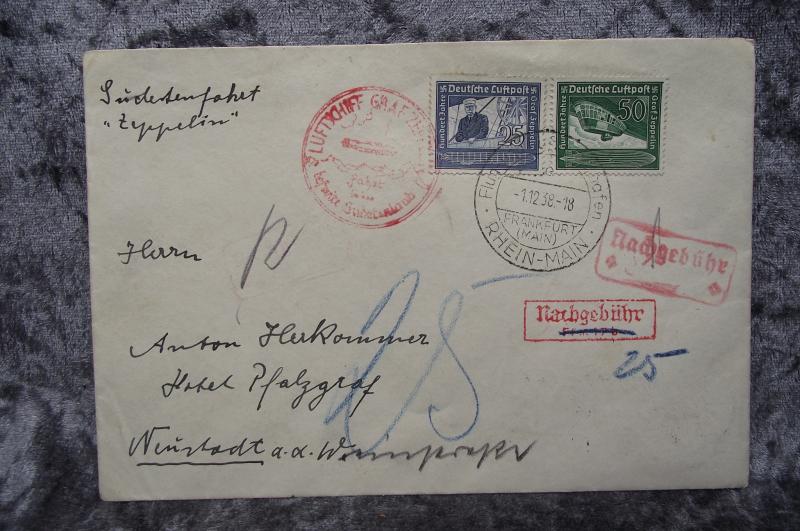 Sudetenfahrt
"Zeppelin"
LUFTSCHIFF GRAF
Fahrt
befreite Sudetenland
Deutsche Luftpost
Hundert Jahre
Graf Zeppelin
25
Deutsche Luftpost
Hundert Jahre
Graf Zeppelin
50
Flug hafen
-1.12.38.-18
FRANKFURT
(MAIN)
RHEIN-MAIN
Nachgebühr
Nachgebühr
25
25
Herrn
Anton Herkommer
Hotel Pfalzgraf
Neustadt a.d. Weinstraße